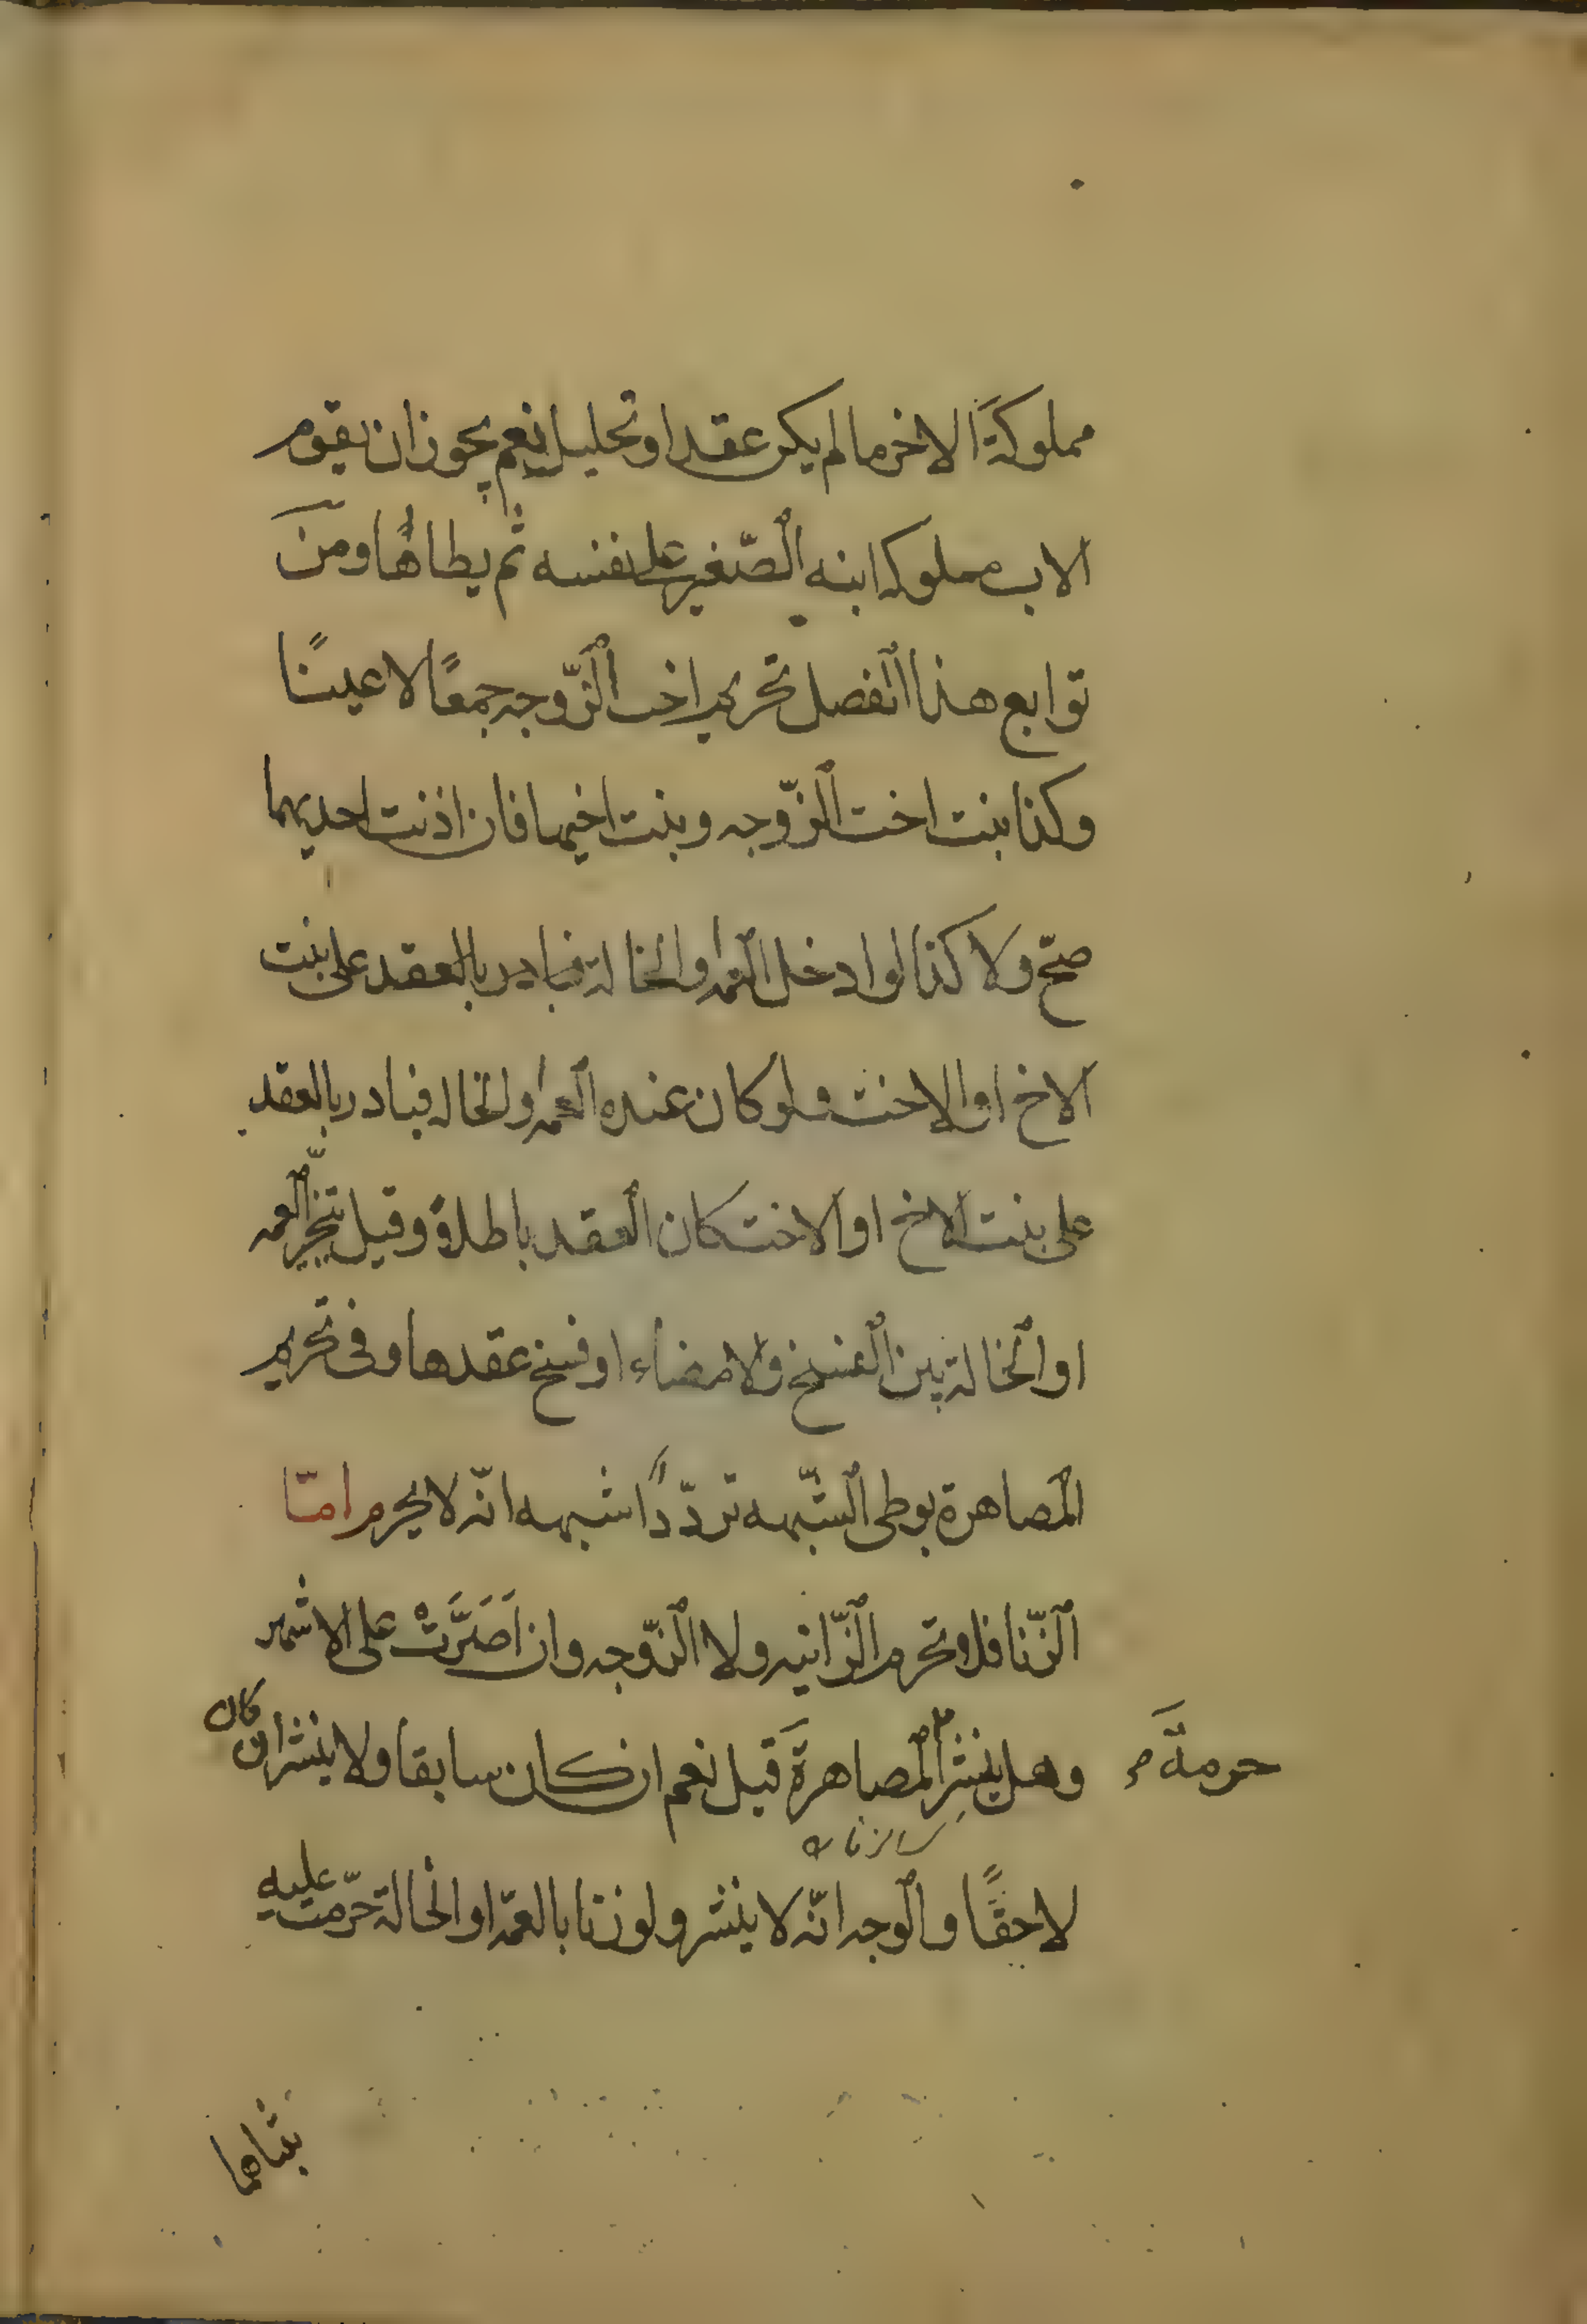 مملوكةَ الاخر ما لم يكن عقد او تحليل نعم يجوز ان يقوم
الاب مملوكه ابنه الصّغير على نفسه ثم يطاها ومن
توابع هذا الفصل تحريم اخت الزّوجه جمعًا لا عينًا
وكذا بنت اخت الزّوجه وبنت اخيها فان اذنت احديهما
صحّ ولا كذا لو ادخل العمه او الخالة فبادر بالعقد على بنت
الاخ او الاخت ولو كان عنده العمه او لخاله فبادر بالعقد
على بنت الاخ او الاخت كان العقد باطلا وقيل تتخيّر العمه
او الخالة بين الفسخ ولامضاء او فسخ عقدها وفى تحريم
المصاهرة بوطى الشّبهه تردّد اشبهه انّه لا يحرم امّا
الزّنا فلا تحرم الزّانيه ولا الزّوجه وان اَصَرَّتْ على الاشهر
وهل ينشر المصاهرةَ قيل نعم ان كان سابقا ولا ينشر ان كان
حرمةَ
لاحقًا والوجه انّه لا ينشر ولو زنا بالعمّه او الخالة حرّمت عليه
بنتاهما